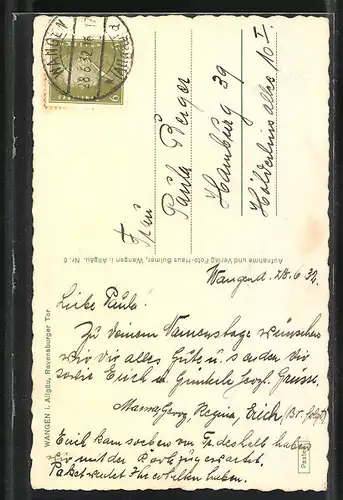 WANGEN i. Allgäu, Ravensburger Tor
WANGEN
28.6.32
6
Frau
Paula Berger
Hamburg 39
Hölderlinsallee 10 I.
Aufnahme und Verlag Foto-Haus Gulmer, Wangen i. Allgäu. Nr. 6
Wangen d. 28.6.32.
Liebe Paula!
Zu deinem Namenstage wünschen
wir dir alles Gute u. senden dir
sowie Erich u. Grüsse.
Mama, Georg, Regina, Erich (Br. folgt)
Erich kam soeben deshalb haben
wir mit der Karte
Paket werdet Ihr erhalten haben.